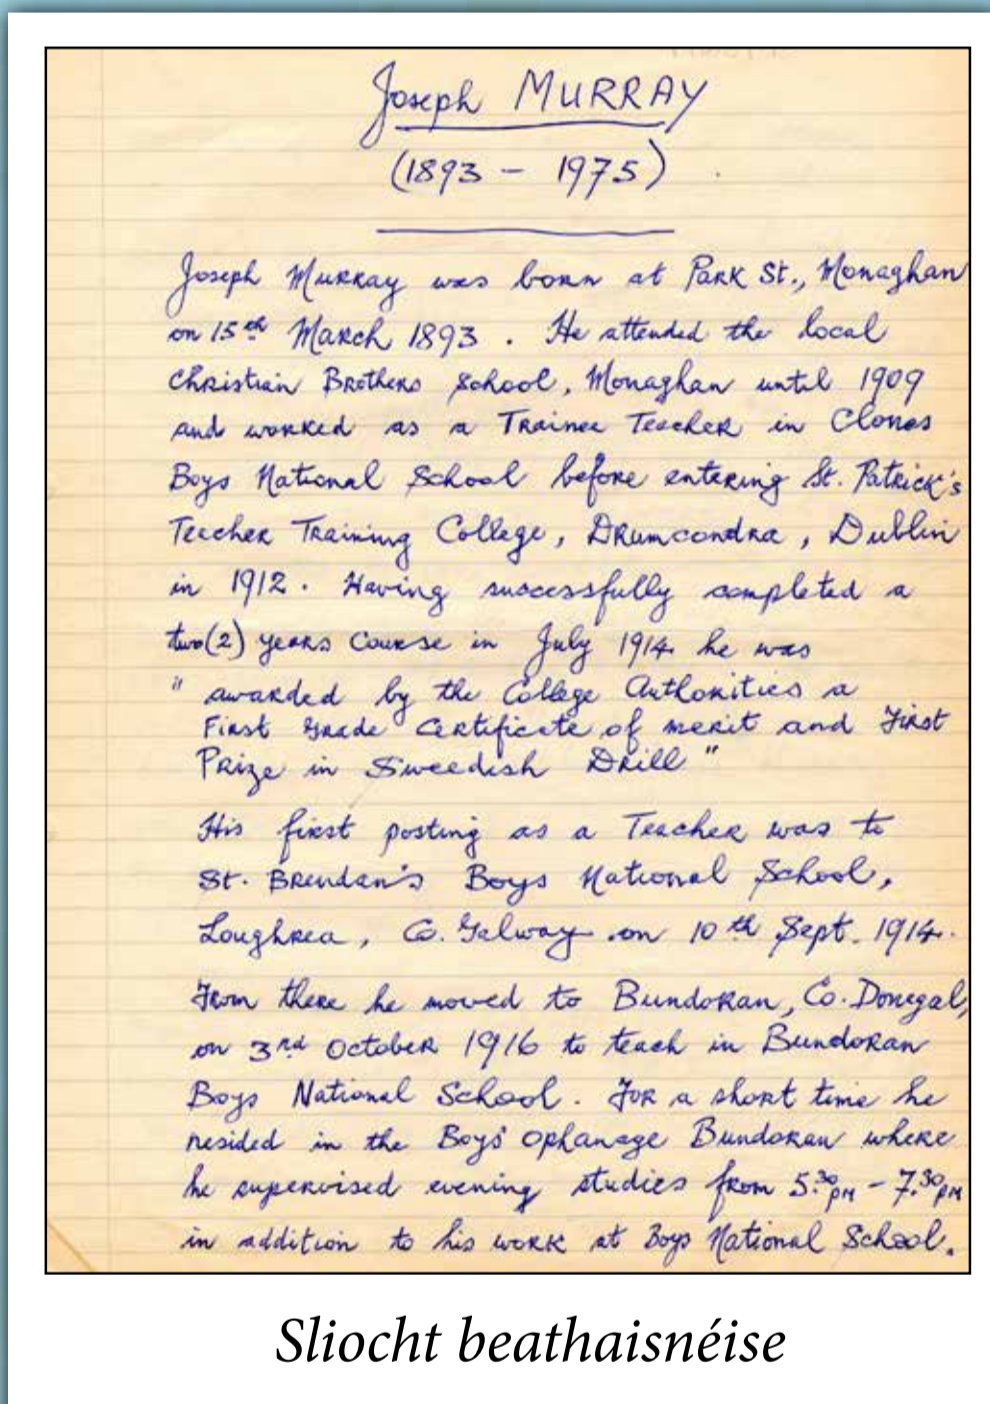 Joseph MURRAY
(1893 - 1975)
Joseph Murray was born at Park St., Monaghan
on 15th March 1893. He attended the local
Christian Brothers School, Monaghan until 1909
and worked as a Trainee Teacher in Clones
Boys National School before entering St. Patrick's
Teacher Training College, Drumcondra, Dublin
in 1912. Having successfully completed a
two(2) years Course in July 1914 he was
" awarded by the College Authorities a
First Grade Certificate of merit and First
Prize in Sweedish Drill "
His first posting as a Teacher was to
St. Brendan's Boys National School,
Loughrea, Co. Galway on 10th Sept. 1914.
From there he moved to Bundoran, Co. Donegal,
on 3rd October 1916 to teach in Bundoran
Boys National School. For a short time he
resided in the Boys' Ophanage Bundoran where
he supervised evening studies from 5.30pm - 7.30pm
in addition to his work at Boys National School.
Sliocht beathaisnéise